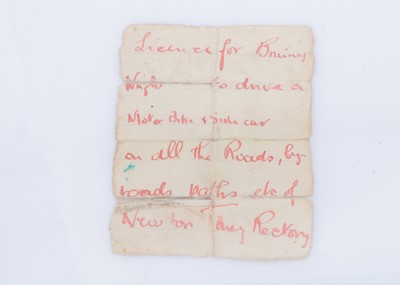 Licence for Bruiny
Wright to drive a
Motor Bike & Side car
on all the Roads, by-
roads paths etc of
Newton Rectory